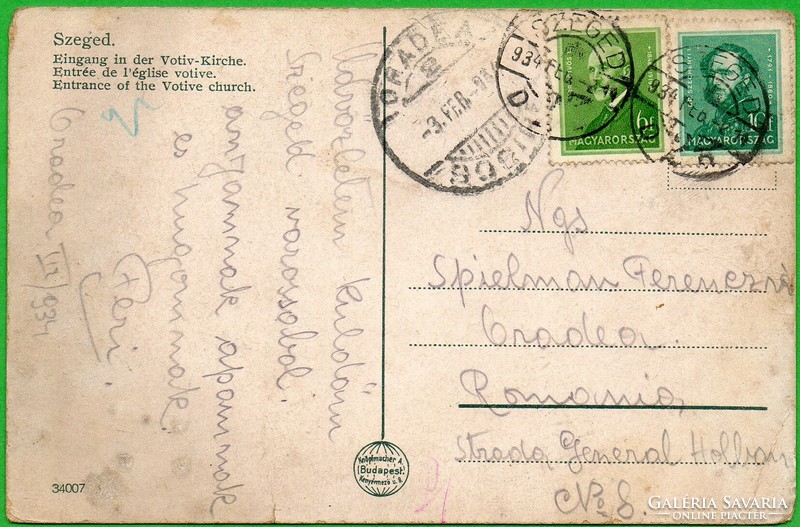 Szeged.
Eingang in der Votiv-Kirche.
Entrée de l'église votive.
Entrance of the Votive church.
Üdvözletem küldöm
Szeged városából
anyámnak apámnak
és hugomnak
Feri.
Oradea II/934
ORADEA
-3.FEB.
SZEGED
934 FEB.
6f
MAGYARORSZÁG
SZEGED
934 FEB.
10f
MAGYARORSZÁG
Ngs
Spielman Ferencné
Oradea.
Romania
Strada General Holban
No 8.
Knöpfmacher A.
Budapest.
Kenyérmező u. 8.
34007
GALÉRIA SAVARIA
ONLINE PIACTÉR